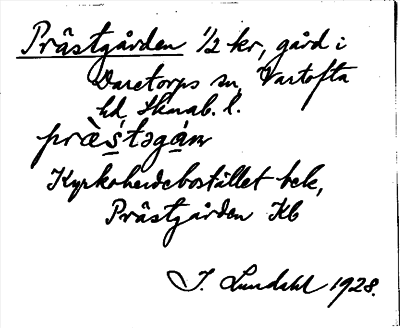 Prästgården 1/2 kr, gård i
Daretorps sn, Vartofta
hd, Skarab. l.
prὰs̲təgán
Kyrkoherdebostället bek,
Prästgården Kb
I. Lundahl 1928.